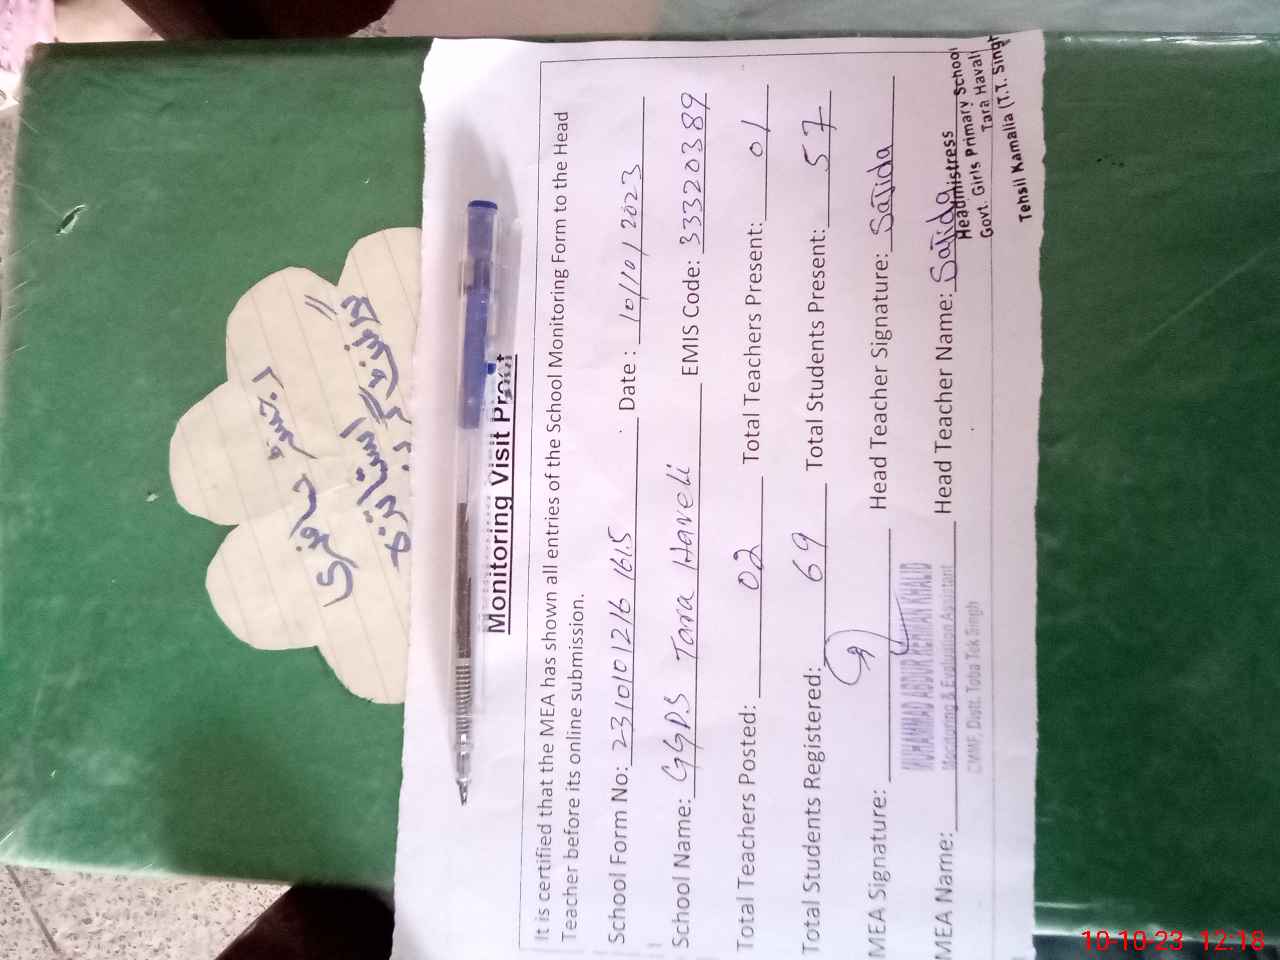 رجسٹر
حاضری
اساتذہ
Monitoring Visit Proof
It is certified that the MEA has shown all entries of the School Monitoring Form to the Head
Teacher before its online submission.
School Form No: 2310101216 1615 Date : 10/10/2023
School Name: GGPS Tara Haveli EMIS Code: 33320389
Total Teachers Posted: 02 Total Teachers Present: 01
Total Students Registered: 69 Total Students Present: 57
MEA Signature: Head Teacher Signature: Sajida
MUHAMMAD ABDUR REHMAN KHALID
MEA Name: Monitoring & Evaluation Assistant Head Teacher Name: Sajida
CMMF, Distt. Toba Tek Singh
Headmistress
Govt. Girls Primary School
Tara Havali
Tehsil Kamalia (T.T. Singh
10-10-23 12:18